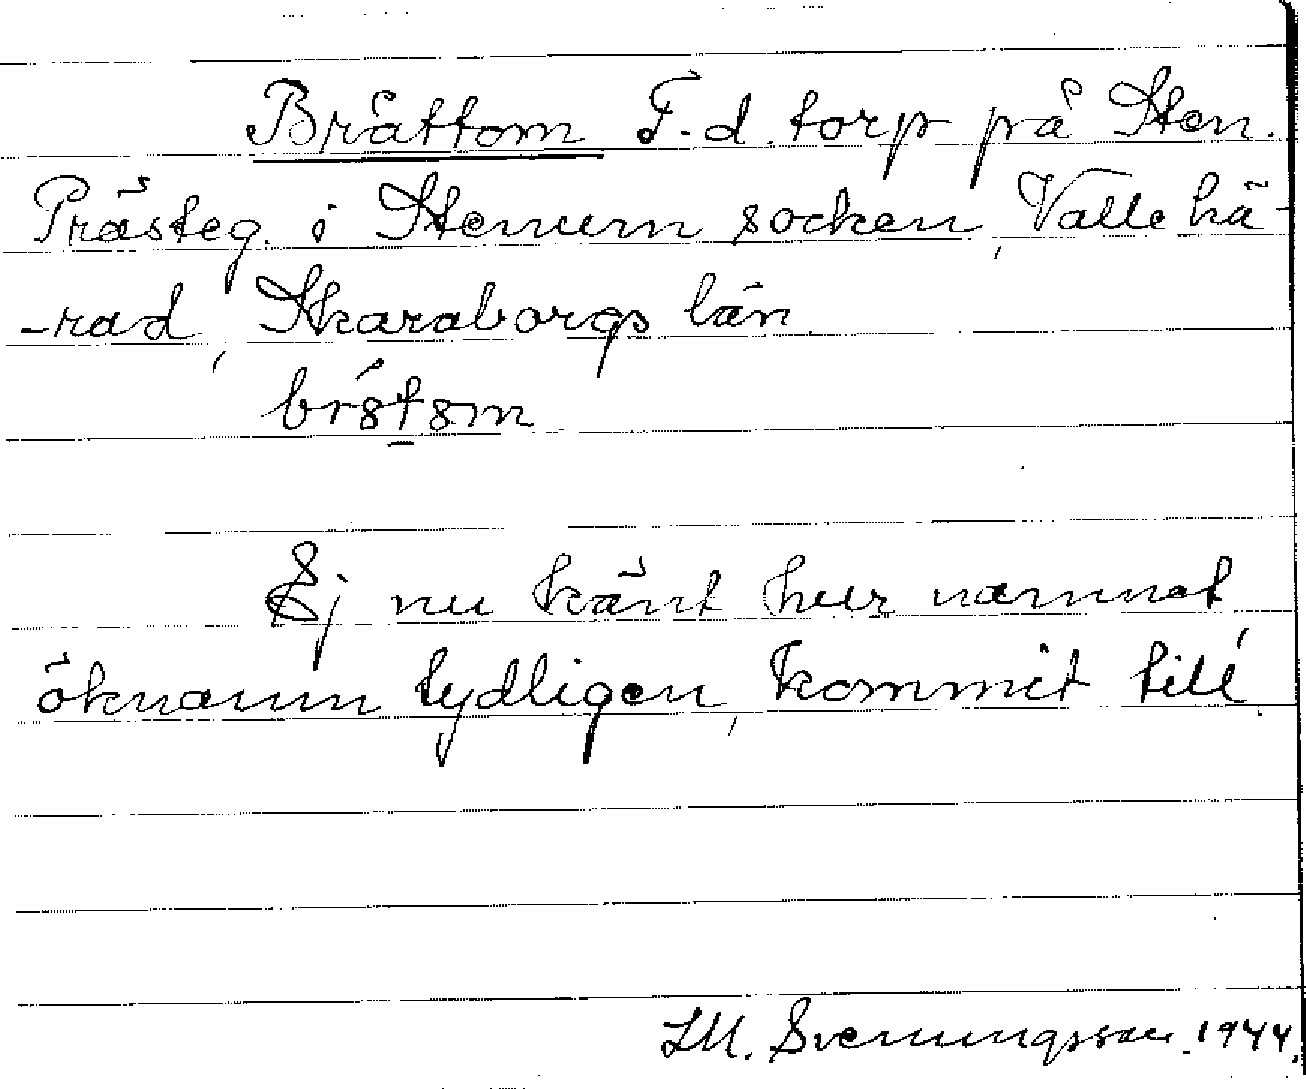 Bråttom F.d. torp på Sten.
Prästeg. i Stenum socken, Valle hä-
-rad, Skaraborgs län
Ej nu känt hur namnet
öknamn tydligen, kommit till.
S.M. Svenungsson 1944.